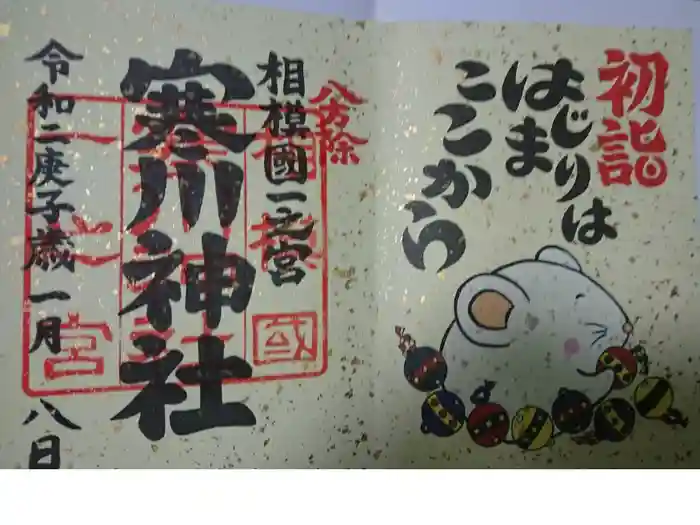 初詣
はじまりは
ここから
八方除
相模國一之宮
寒川神社
令和二庚子歳一月八日
相模國
一之宮